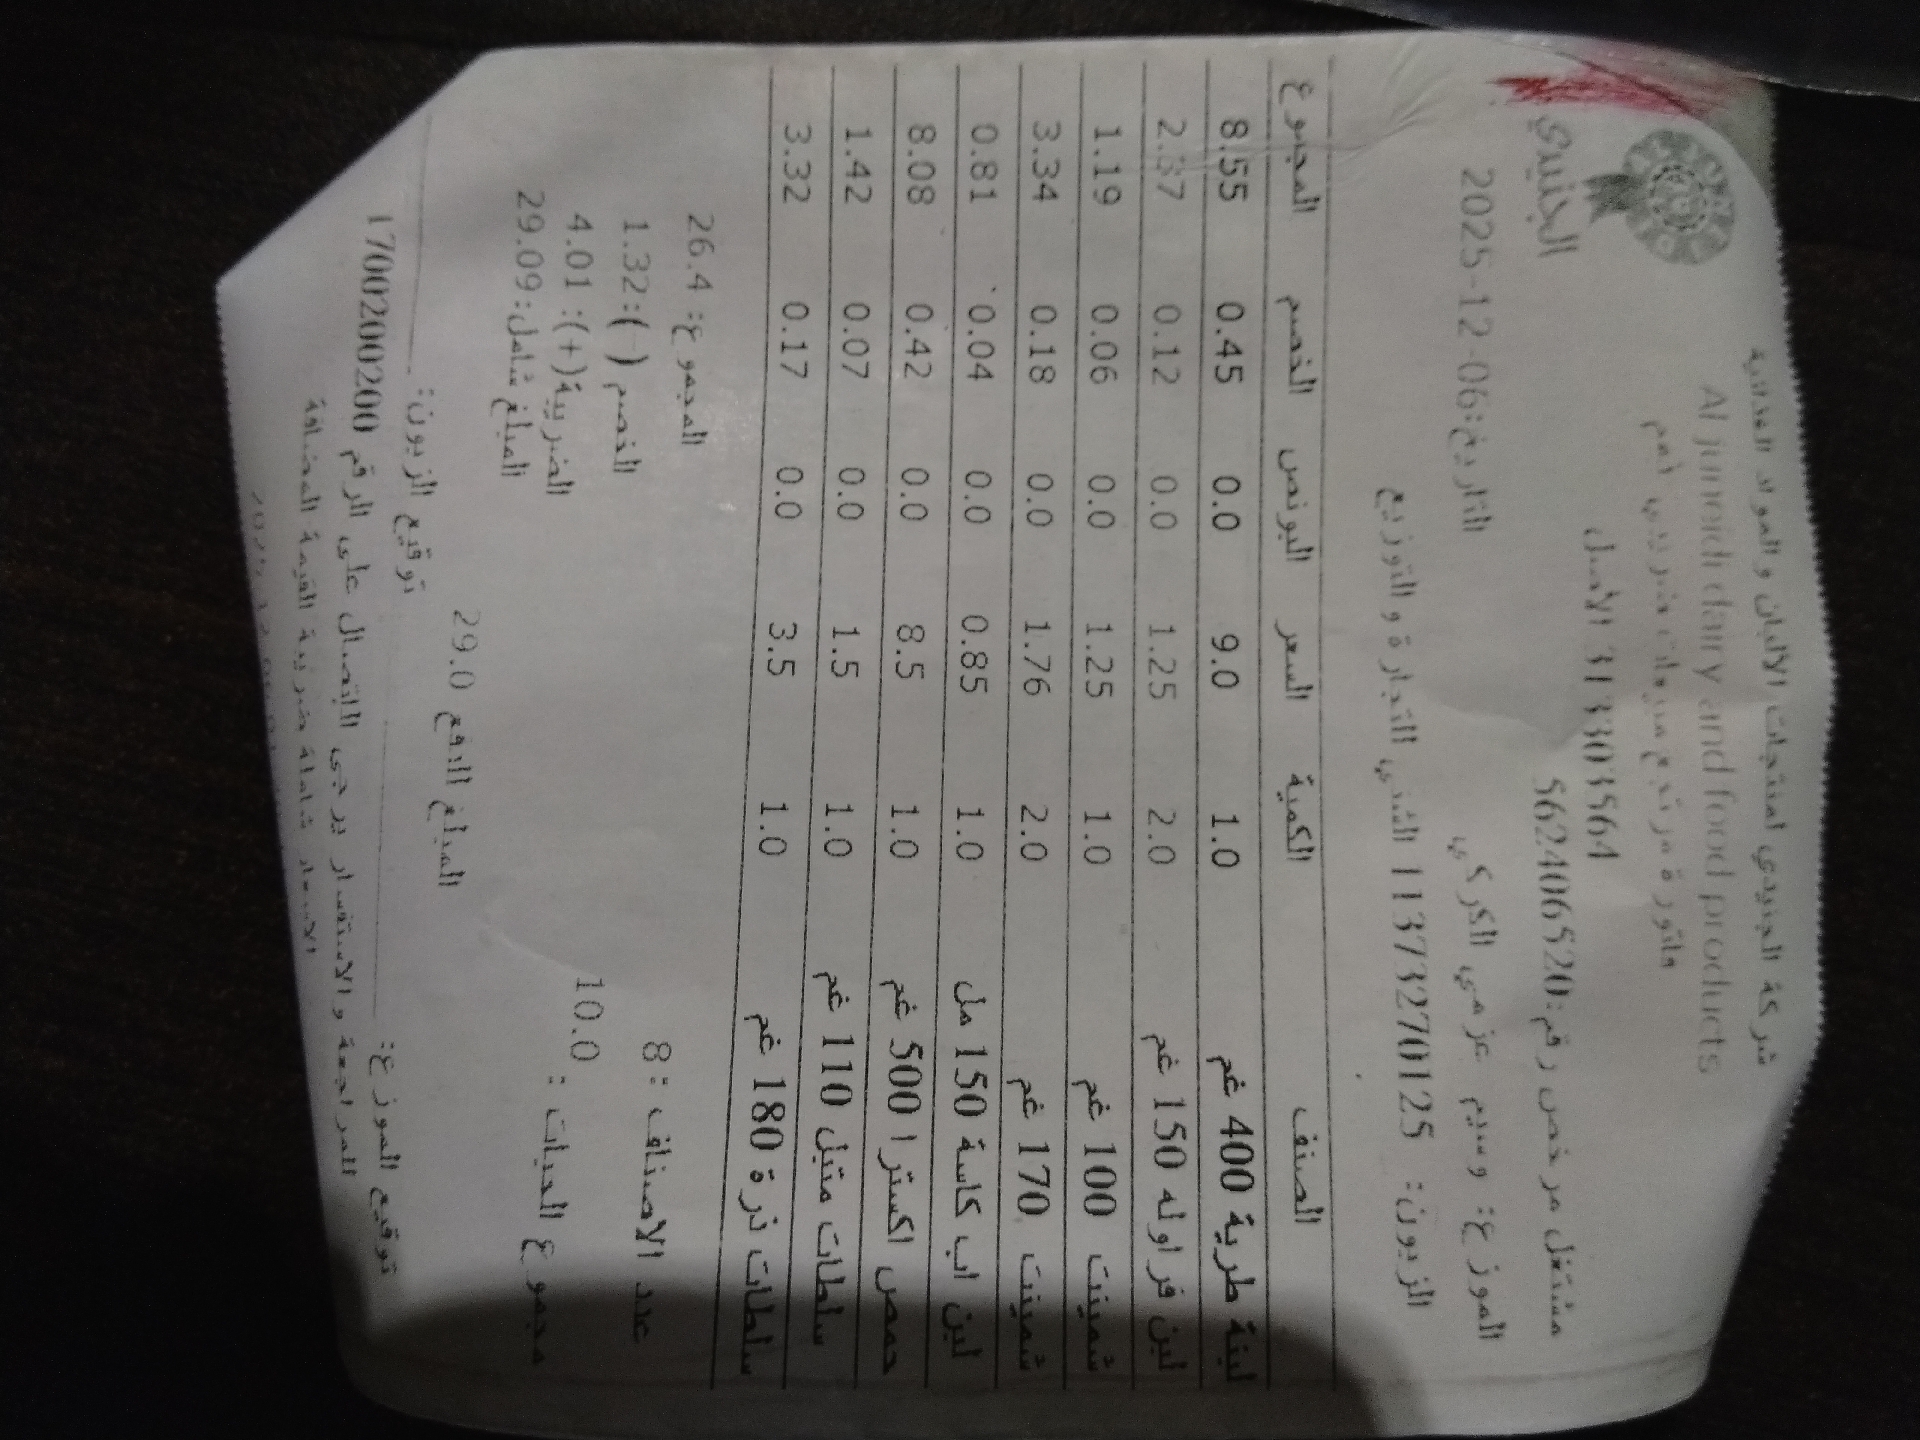 شركة الجنيدي لمنتجات الالبان والمواد الغذائية
Al juneidi dairy and food products
فاتورة مرتجع مبيعات ضريبي
313303564 الاصل
مشتغل مرخص رقم:562406520
الجنيدي
الموزع: وسيم عزمي الكركي
التاريخ:2025-12-06
الزبون: 11373270125 الشني للتجارة والتوزيع
الصنف الكمية السعر البونص الخصم المجموع
لبنة طرية 400 غم 1.0 9.0 0.0 0.45 8.55
لبن فراوله 150 غم 2.0 1.25 0.0 0.12 2.37
شمينت 100 غم 1.0 1.25 0.0 0.06 1.19
شمينت 170 غم 2.0 1.76 0.0 0.18 3.34
لبن اب كاسة 150 مل 1.0 0.85 0.0 0.04 0.81
حمص اكسترا 500 غم 1.0 8.5 0.0 0.42 8.08
سلطات متبل 110 غم 1.0 1.5 0.0 0.07 1.42
سلطات ذرة 180 غم 1.0 3.5 0.0 0.17 3.32
المجموع: 26.4
عدد الاصناف : 8
الخصم (-):1.32
مجموع الحبات : 10.0
الضريبة(+): 4.01
المبلغ شامل:29.09
المبلغ الدفع 29.0
توقيع الموزع:
توقيع الزبون:
للمراجعة والاستفسار يرجى الاتصال على الرقم 1700200200
الاسعار شاملة ضريبة القيمة المضافة